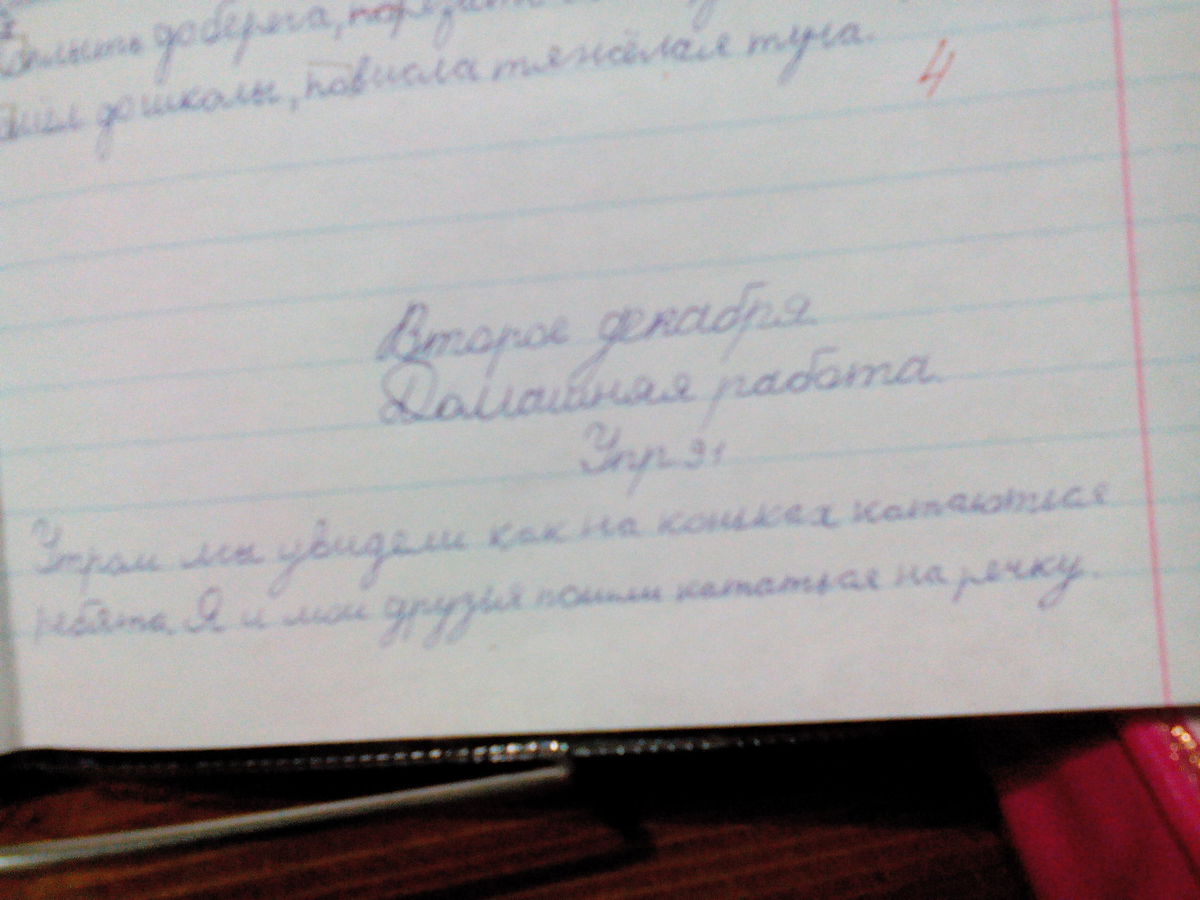 доберега,
дошколы, повисла тяжёлая туча.
4
Второе декабря.
Домашняя работа.
Упр 91
Утром мы увидели как на кошках катаються
ребята. Я и мои друзья пошли кататься на речку.